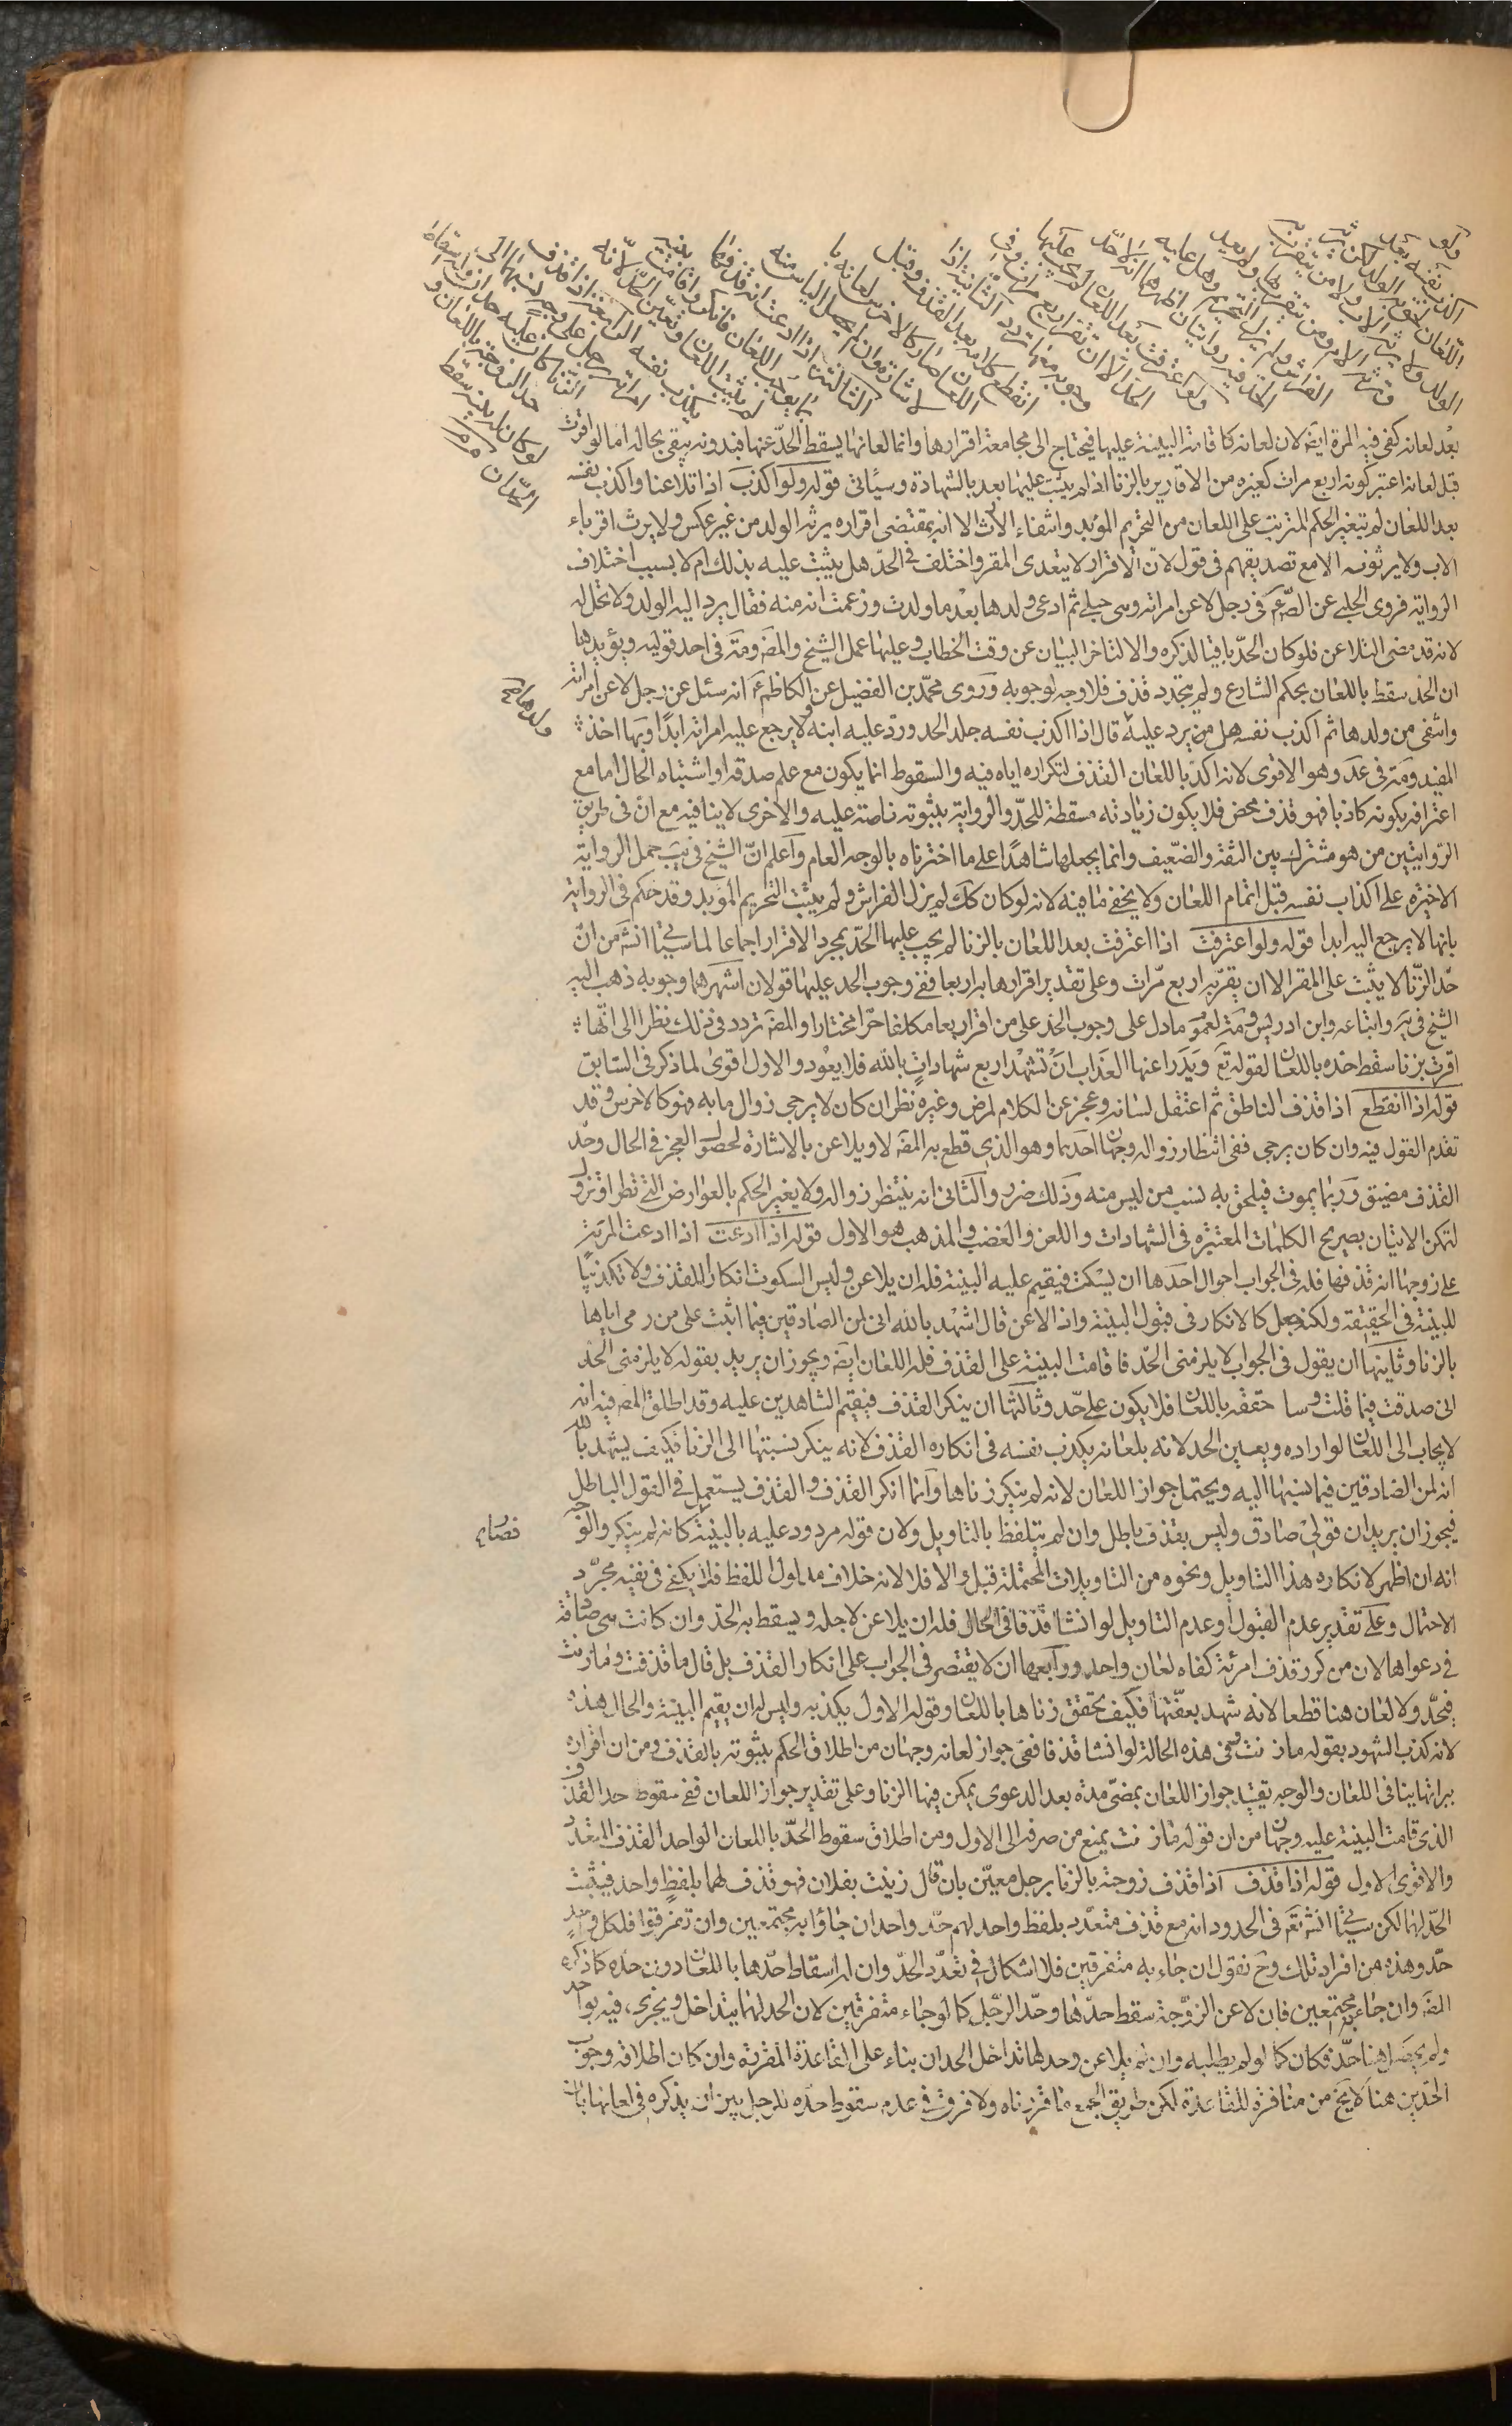 ولو
اكذب نفسه بعد
اللعان لحق به الولد لكن يرثه
الولد ولا يرثه الاب ولا من يتقرب به
وترثه الام ومن يتقرب بها ولم يعد
الفراش ولم يزل التحريم وهل عليه
الحد فيه روايتان اظهرهما انه لا حد
ولو اعترفت بعد اللعان لم يجب عليها
الحد الا ان تقر اربع مرات وفي
وجوبه معها تردد الثانية اذا
انقطع كلامه بعد القذف وقبل
اللعان صار كالاخرس لعانه با
لاشارة وان لم يحصل الياس منه
الثالثة اذا ادعت انه قذفها بما
يوجب اللعان فانكر فاقامت بينة
لم يثبت اللعان وتعين الحد لانه
يكذب نفسه الرابعة اذا قذف
امراته برجل على وجه نسبهما الى
الزنا كان عليه حدان وله اسقاط
حد الزوجة باللعان و
لو كان له بينة سقط
الحدان
بعد لعانه كفى فيه المرة ايضا لان لعانه كاقامة البينة عليها فيحتاج الى مجامعة اقرارها وانما لعانها يسقط الحد عنها فبدونه يبقى بحاله اما لو اقرت
قبل لعانه اعتبر كونه اربع مرات كغيره من الاقارير بالزنا اذ لم يثبت عليها بعد بالشهادة وسياتي قوله ولو اكذب اذا تلاعنا واكذب نفسه
بعد اللعان لم يتغير الحكم المترتب على اللعان من التحريم المؤبد وانتفاء الارث الا انه بمقتضى اقراره يرثه الولد من غير عكس ولا يرث اقرباء
الاب ولا يرثونه الا مع تصديقهم في قول لان الاقرار لا يتعدى المقر واختلف في الحد هل يثبت عليه بذلك ام لا بسبب اختلاف
الرواية فروى الحلبي عن الصم في رجل لاعن امراته وهي حبلى ثم ادعى ولدها بعد ما ولدت وزعمت انه منه فقال يرد اليه الولد ولا تحل له
لانه قد مضى التلاعن فلو كان الحد باقيا لذكره والا لتاخر البيان عن وقت الخطاب وعليها عمل الشيخ والمصه ومة في احد قوليه ويؤيدها
ان الحد سقط باللعان بحكم الشارع ولم يتجدد قذف فلا وجه لوجوبه وروى محمد بن الفضيل عن الكاظم ع انه سئل عن رجل لاعن امراته
وانتفى من ولدها ثم اكذب نفسه هل يرد عليه قال اذا اكذب نفسه جلد الحد ورد عليه ابنه ولا يرجع عليه امراته ابدا وبها اخذ
المفيد ومة في عد وهو الاقوى لانه اكد باللعان القذف لتكراره اياه فيه والسقوط انما يكون مع علم صدقه او اشتباه الحال اما مع
اعترافه بكونه كاذبا فهو قذف محض فلا يكون زيادته مسقطة للحد والرواية بثبوته ناصة عليه والاخرى لا ينافيه مع ان في طريق
الروايتين من هو مشترك بين الثقة والضعيف وانما يجعلها شاهدا على ما اخترناه بالوجه العام واعلم ان الشيخ في يب حمل الرواية
الاخيرة على اكذاب نفسه قبل اتمام اللعان ولا يخفى ما فيه لانه لو كان كك لم يزل الفراش ولم يثبت التحريم المؤبد وقد حكم في الرواية
بانها لا يرجع اليه ابدا قوله ولو اعترفت اذا اعترفت بعد اللعان بالزنا لم يجب عليها الحد بمجرد الاقرار اجماعا لما سيأتي انشه من ان
حد الزنا لا يثبت على المقر الا ان يقر به اربع مرات وعلى تقدير اقرارها به اربعا ففي وجوب الحد عليها قولان اشهرهما وجوبه ذهب اليه
الشيخ في يه واتباعه وابن ادريس ومة لعموم ما دل على وجوب الحد على من اقر اربعا مكلفا حرا مختارا والمصه تردد في ذلك نظرا الى انها
اقرت بزنا سقط حده باللعان لقوله تع ويدرا عنها العذاب ان تشهد اربع شهادات بالله فلا يعود والاول اقوى لما ذكر في السابق
قوله اذا انقطع اذا قذف الناطق ثم اعتقل لسانه وعجز عن الكلام لمرض وغيره نظر ان كان لا يرجى زوال ما به فهو كالاخرس وقد
تقدم القول فيه وان كان يرجى ففي انتظار زواله وجهان احدهما وهو الذي قطع به المصه لا ويلاعن بالاشارة لحصول العجز في الحال وحد
القذف مضيق وربما يموت فيلحق به نسب من ليس منه وذلك ضرر والثاني انه ينتظر زواله ولا يغير الحكم بالعوارض التي تطرا وتزول
لتمكن الاتيان بصريح الكلمات المعتبرة في الشهادات واللعن والغضب والمذهب هو الاول قوله اذا ادعت اذا ادعت المرئة
على زوجها انه قذفها فله في الجواب احوال احدها ان يسكت فيقيم عليه البينة فله ان يلاعن وليس السكوت انكارا للقذف ولا تكذيبا
للبينة في الحقيقة ولكنه جعل كالانكار في قبول البينة واذا لاعن قال اشهد بالله اني لمن الصادقين فيما اثبت على من رمي اياها
بالزنا وثانيها ان يقول في الجواب لا يلزمني الحد فاقامت البينة على القذف فله اللعان ايضا ويجوز ان يريد بقوله لا يلزمني الحد
اني صدقت فيما قلت وسا حققه باللعان فلا يكون على حد وثالثها ان ينكر القذف فيقيم الشاهدين عليه وقد اطلق المصه فيه انه
لا يجاب الى اللعان لو اراده ويعين الحد لانه بلعانه يكذب نفسه في انكاره القذف لانه ينكر نسبتها الى الزنا فكيف يشهد بالله
انه لمن الصادقين فيما نسبتها اليه ويحتمل جواز اللعان لانه لم ينكر زناها وانما انكر القذف والقذف يستعمل في القول الباطل
فيجوز ان يريد ان قولي صادق وليس بقذف باطل وان لم يتلفظ بالتاويل ولان قوله مردود عليه بالبينة كانه لم ينكر والوجه
انه ان اظهر لانكاره هذا التاويل ونحوه من التاويلات المحتملة قبل والا فلا لانه خلاف مدلول اللفظ فلا يكفي في نفيه مجرد
الاحتمال وعلى تقدير عدم القبول او عدم التاويل لو انشا قذفا في الحال فله ان يلاعن لاجله ويسقط به الحد وان كانت هي صادقة
في دعواها لان من كرر قذف امرئة كفاه لعان واحد ورابعها ان لا يقتصر في الجواب على انكار القذف بل قال ما قذفت وما زنيت
فيحد ولا لعان هنا قطعا لانه شهد بعفتها فكيف يحقق زناها باللعان وقوله الاول يكذبه وليس له ان يقيم البينة والحال هذه
لانه كذب الشهود بقوله ما زنت وفي هذه الحالة لو انشا قذفا ففي جواز لعانه وجهان من اطلاق الحكم بثبوته بالقذف ومن ان اقراره
ببراتها ينافى اللعان والوجه تقييد جواز اللعان بمضي مدة بعد الدعوى يمكن فيها الزنا وعلى تقدير جواز اللعان ففي سقوط حد القذف
الذي قامت البينة عليه وجهان من ان قوله ما زنت يمنع من صرفه الى الاول ومن اطلاق سقوط الحد باللعان الواحد القذف المتعدد
والاقوى الاول قوله اذا قذف اذا قذف زوجته بالزنا برجل معين بان قال زنيت بفلان فهو قذف لهما بلفظ واحد فيثبت
الحد لهما لكن سيأتي انشه تع في الحدود انه مع قذف متعدد بلفظ واحد لهم حد واحد ان جاؤا به مجتمعين وان تفرقوا فلكل واحد
حد وهذه من افراد تلك وح نقول ان جاء به متفرقين فلا اشكال في تعدد الحد وان له اسقاط حدها باللعان دون حده كما ذكره
المصه وان جاء مجتمعين فان لاعن الزوجة سقط حدها وحد الرجل كما لو جاء متفرقين لان الحد لهما يتداخل ويجزى فيه بواحد
ولم يحصل هنا حد فكان كما لو لم يطلبه وان لم يلاعن وحد لها تداخل الحدان بناء على القاعدة المقررة وان كان اطلاقه وجوب
الحدين هنا لا يخ من منافرة للقاعدة لكن طريق الجمع ما قررناه ولا فرق في عدم سقوط حده للرجل بين ان يذكره في لعانها بان